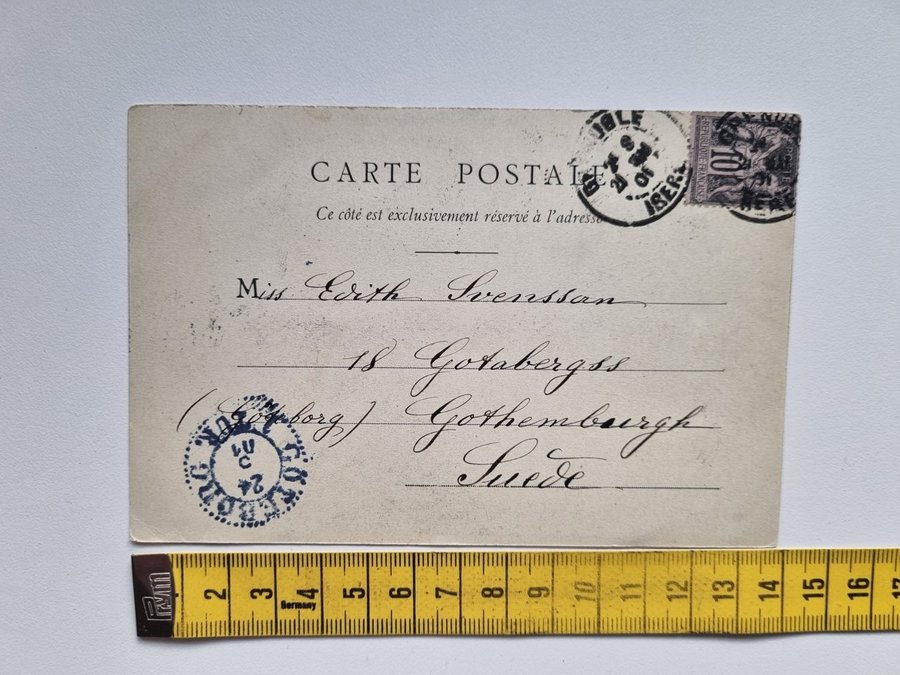 CARTE POSTALE
Ce côté est exclusivement réservé à l'adresse
Miss Edith Svensson
18 Gotabergss
(Göteborg) Gothemburgh
Suède
10
ISERE
GÖTEBORG
24
3
01
2 3 4 5 6 7 8 9 10 11 12 13 14 15 16 17
Germany